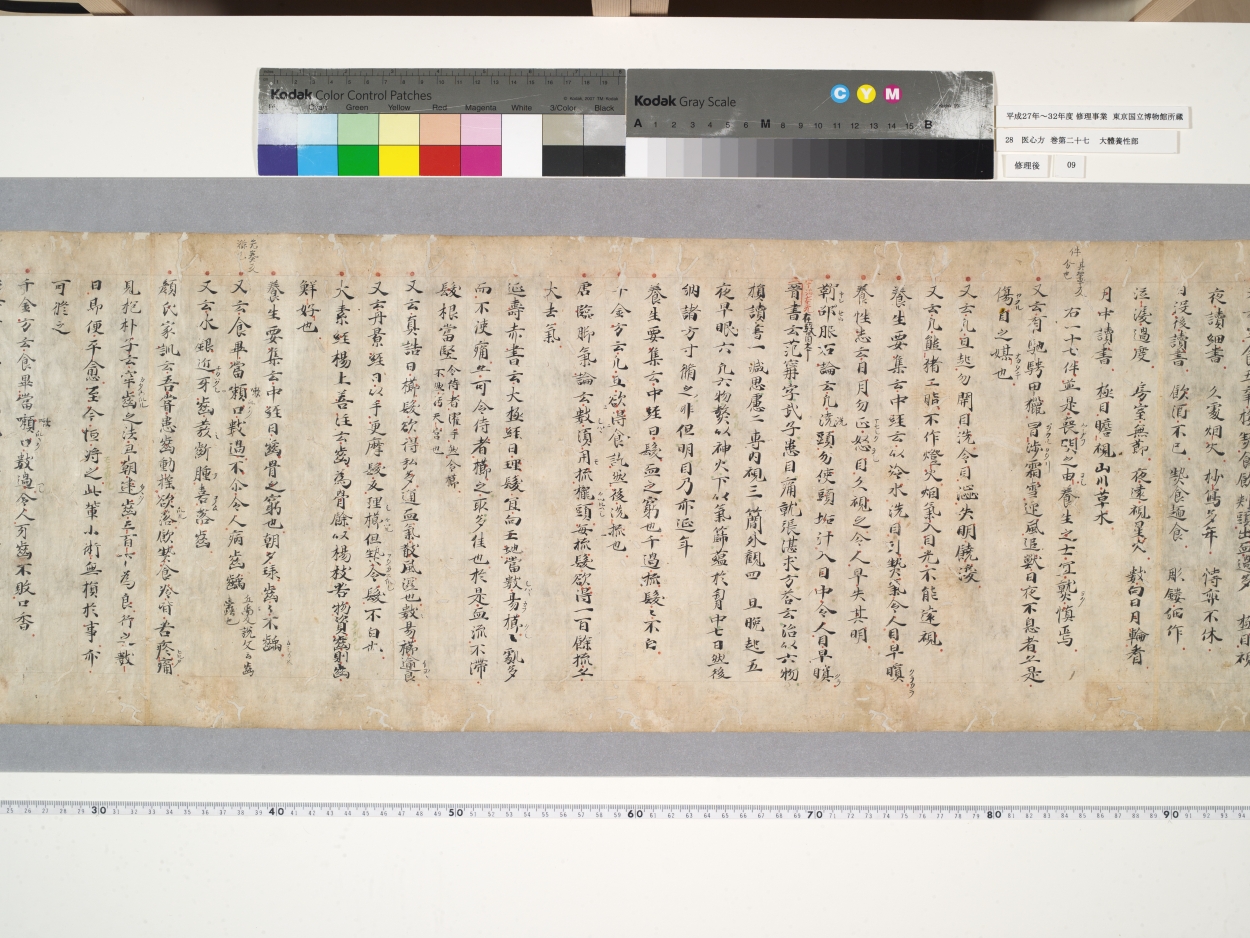 Kodak Color Control Patches
© Kodak, 2007 TM: Kodak
Cyan Green Yellow Red Magenta White 3/Color Black
Kodak Gray Scale
C Y M
A 1 2 3 4 5 6 M 8 9 10 11 12 13 14 15 B
平成27年~32年度 修理事業 東京国立博物館所蔵
28 医心方 巻第二十七 大體養性部
修理後 09
夜讀細書 久處烟火 抄寫多年 博弈不休
日沒後讀書 飲酒不已 熱食麺食 彫鏤細作
泣淚過度 房室無節 夜遠視星火 數向日月輪看
月中讀書 極目瞻視山川草木
右一十七件並是喪明之由養生之士宜熟慎焉
又云有馳騁田獵冒涉霜雪迎風追獸日夜不息者亦是
傷目之媒也
又云凡旦起勿開目洗令目澁失明饒淚
又云凡熊猪二脂不作燈火烟氣入目光不能遠視
養生要集云中經云以冷水洗目引熱氣令人目早瞑
養性志云目月勿正怒目久視之令人早失其明
靳邵服石論云凡洗頭勿使頭垢汁入目中令人目早瞑
晉書云范寗字武子患目痛就張湛求方答云治以六物
損讀書一減思慮二專內視三簡外觀四旦晚起五
夜早眠六凡六物熬以神火下以氣篩蘊於胸中七日然後
納諸方寸脩之非但明目乃亦延年
養生要集云中經曰髮血之窮也千過梳髮髮不白
千金方云凡五欲得食訖然後洗梳也
君臨脚氣論云數須用梳攏頭每梳髮欲得一百餘梳亦
大去氣
延壽赤書云大極經曰理髮宜向王地當數易櫛櫛亂多
而不使痛亦可令侍者櫛之取多佳也於是血流不滯
髮根當堅
又云真誥曰櫛髮欲得弘多通血氣散風濕也數易櫛逾良
又云丹景經曰以手更摩髮及理櫛但熱令髮不白廾
大素經楊上善注云齒為骨餘以楊枝若物資齒則齒
鮮好也
養生要集云中經曰齒骨之窮也朝夕琢齒齒不齲
又云食畢當嗽口數過不尒令人病齒齲
又云水銀近牙齒發齗腫喜落齒
顏氏家訓云吾嘗患齒動搖欲落飲熱食冷皆苦疼痛
見抱朴子云牢齒之法旦朝建齒三百下為良行之數
日即便平愈至今恒將之此輩小術無損於事亦
可脩之
千金方云食畢當嗽口數過令人牙齒不敗口香